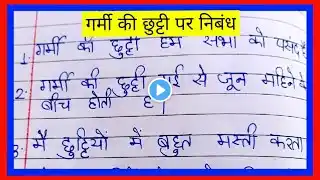 गर्मी की छुट्टी पर निबंध
1. गर्मी की छुट्टी हम सभी को पसंद है
2. गर्मी की छुट्टी मई से जून महिने के
बीच होती है।
3. मै छुट्टियों में बहुत मस्ती करता